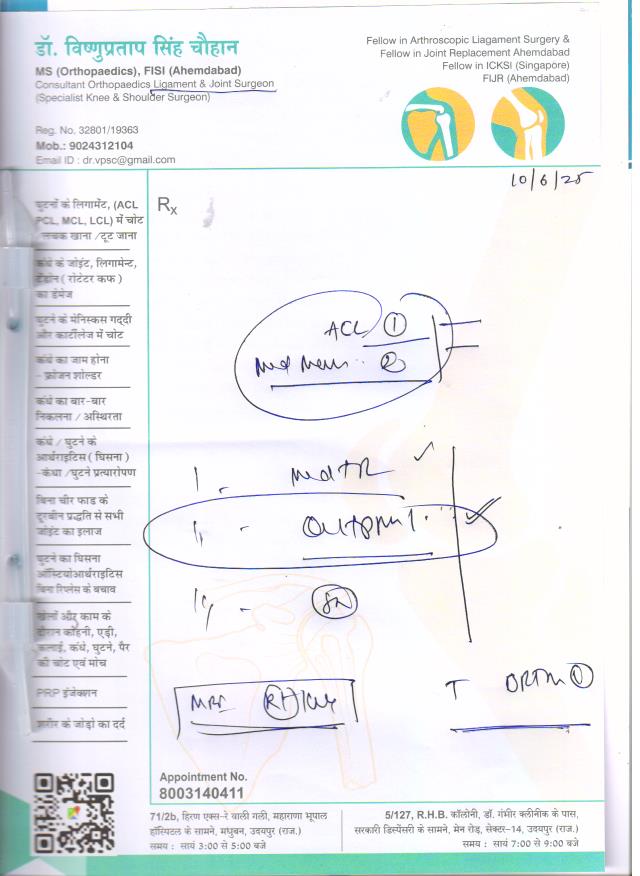 डॉ. विष्णुप्रताप सिंह चौहान
MS (Orthopaedics), FISI (Ahemdabad)
Consultant Orthopaedics Ligament & Joint Surgeon
(Specialist Knee & Shoulder Surgeon)
Reg. No. 32801/19363
Mob.: 9024312104
Email ID : dr.vpsc@gmail.com
Fellow in Arthroscopic Liagament Surgery &
Fellow in Joint Replacement Ahemdabad
Fellow in ICKSI (Singapore)
FIJR (Ahemdabad)
10/6/25
घुटनों के लिगामेंट, (ACL
PCL, MCL, LCL) में चोट
लचक खाना /टूट जाना
कंधे के जोइंट, लिगामेन्ट,
टेंडोन ( रोटेटर कफ )
का डेमेज
घुटने के मेनिस्कस गद्दी
और कार्टीलेज में चोट
कंधे का जाम होना
- फ्रोजन शोल्डर
कंधे का बार-बार
निकलना / अस्थिरता
कंधे / घुटने के
आर्थराइटिस ( घिसना )
-कंधा / घुटने प्रत्यारोपण
बिना चीर फाड के
दूरबीन प्रद्धति से सभी
जोइंट का इलाज
घुटने का घिसना
ऑस्टियोआर्थराइटिस
बिना रिप्लेस के बचाव
खेलों और काम के
दौरान कोहनी, एड़ी,
कलाई, कंधे, घुटने, पैर
की चोट एवं मोच
PRP इंजेक्शन
शरीर के जोड़ो का दर्द
Rx
ACL 1
2
MRI Rt
T
Appointment No.
8003140411
71/2b, हिरण एक्स-रे वाली गली, महाराणा भूपाल
हॉस्पिटल के सामने, मधुबन, उदयपुर (राज.)
समय : सायं 3:00 से 5:00 बजे
5/127, R.H.B. कॉलोनी, डॉ. गंभीर क्लीनीक के पास,
सरकारी डिस्पेंसरी के सामने, मेन रोड़, सेक्टर-14, उदयपुर (राज.)
समय : सायं 7:00 से 9:00 बजे